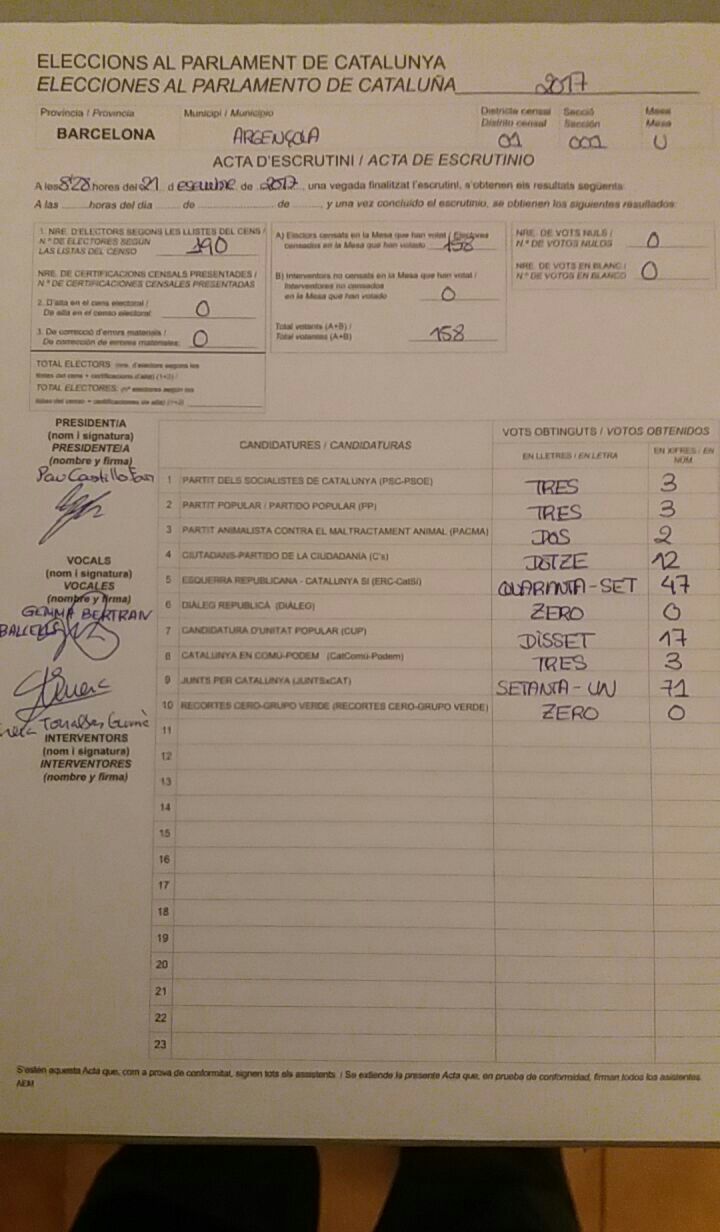 ELECCIONS AL PARLAMENT DE CATALUNYA
ELECCIONES AL PARLAMENTO DE CATALUÑA 2017
Província / Provincia Municipi / Municipio Districte censal Secció Mesa
Distrito censal Sección Mesa
BARCELONA ARGENÇOLA 01 001 U
ACTA D'ESCRUTINI / ACTA DE ESCRUTINIO
A les 8'28 hores del 21 d esembre de 2017, una vegada finalitzat l'escrutini, s'obtenen els resultats següents:
A las hores del día de de , y una vez concluido el escrutinio, se obtienen los siguientes resultados:
1. NRE. D'ELECTORS SEGONS LES LLISTES DEL CENS /
N.º DE ELECTORES SEGÚN
LAS LISTAS DEL CENSO 190
NRE. DE CERTIFICACIONS CENSALS PRESENTADES /
N.º DE CERTIFICACIONES CENSALES PRESENTADAS
2. D'alta en el cens electoral /
De alta en el censo electoral: 0
3. De correcció d'errors materials /
De corrección de errores materiales: 0
TOTAL ELECTORS (nre. d'electors segons les
llistes del cens + certificacions d'alta) (1+2) /
TOTAL ELECTORES: (nº electores según las
listas del censo + certificaciones de alta) (1+2)
A) Electors censats en la Mesa que han votat / Electores
censados en la Mesa que han votado 158
B) Interventors no censats en la Mesa que han votat /
Interventores no censados
en la Mesa que han votado 0
Total votants (A+B) /
Total votantes (A+B) 158
NRE. DE VOTS NULS /
N.º DE VOTOS NULOS 0
NRE. DE VOTS EN BLANC /
N.º DE VOTOS EN BLANCO 0
PRESIDENT/A
(nom i signatura)
PRESIDENTE/A
(nombre y firma)
Pau Castillo
VOCALS
(nom i signatura)
VOCALES
(nombre y firma)
GEMMA BERTRAN
BALCELLS
Torralba
INTERVENTORS
(nom i signatura)
INTERVENTORES
(nombre y firma)
CANDIDATURES / CANDIDATURAS VOTS OBTINGUTS / VOTOS OBTENIDOS
EN LLETRES / EN LETRA EN XIFRES / EN NÚM.
1 PARTIT DELS SOCIALISTES DE CATALUNYA (PSC-PSOE) TRES 3
2 PARTIT POPULAR / PARTIDO POPULAR (PP) TRES 3
3 PARTIT ANIMALISTA CONTRA EL MALTRACTAMENT ANIMAL (PACMA) DOS 2
4 CIUTADANS-PARTIDO DE LA CIUDADANÍA (C's) DOTZE 12
5 ESQUERRA REPUBLICANA - CATALUNYA SÍ (ERC-CatSí) QUARANTA-SET 47
6 DIÀLEG REPUBLICÀ (DIÀLEG) ZERO 0
7 CANDIDATURA D'UNITAT POPULAR (CUP) DISSET 17
8 CATALUNYA EN COMÚ-PODEM (CatComú-Podem) TRES 3
9 JUNTS PER CATALUNYA (JUNTSxCAT) SETANTA-UN 71
10 RECORTES CERO-GRUPO VERDE (RECORTES CERO-GRUPO VERDE) ZERO 0
11
12
13
14
15
16
17
18
19
20
21
22
23
S'estén aquesta Acta que, com a prova de conformitat, signen tots els assistents. / Se extiende la presente Acta que, en prueba de conformidad, firman todos los asistentes.
AEM